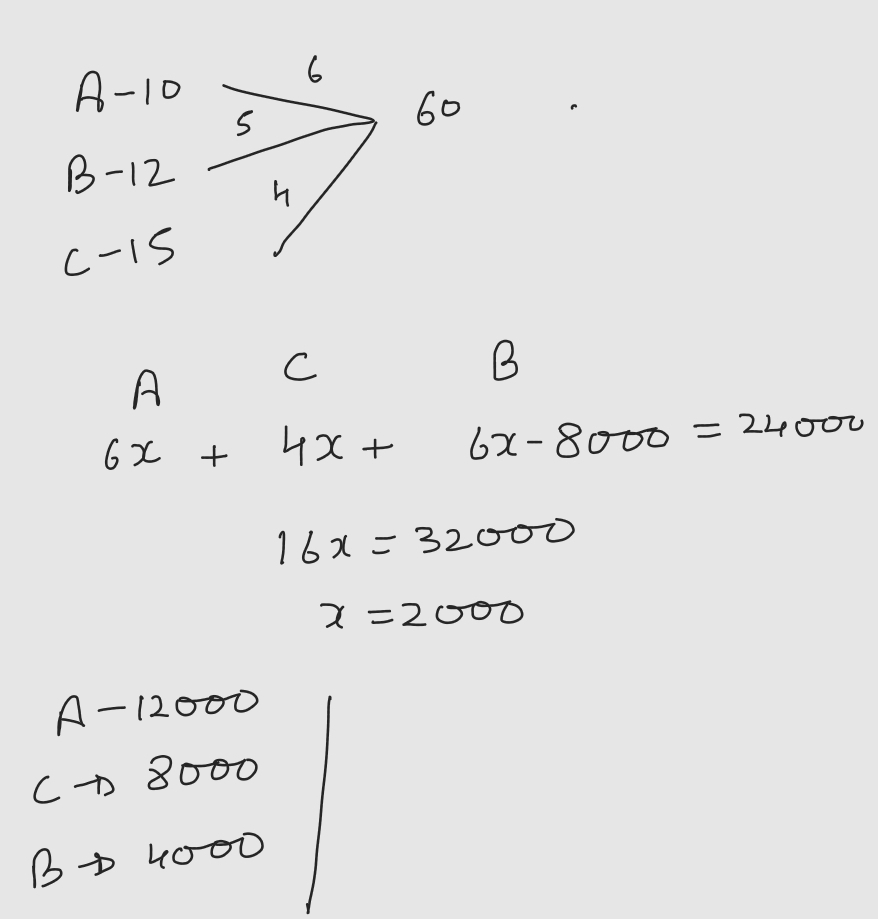 A-10 6
5 60
B-12
4
C-15
A C B
6x + 4x + 6x-8000 = 24000
16x = 32000
x = 2000
A-12000
C → 8000
B → 4000